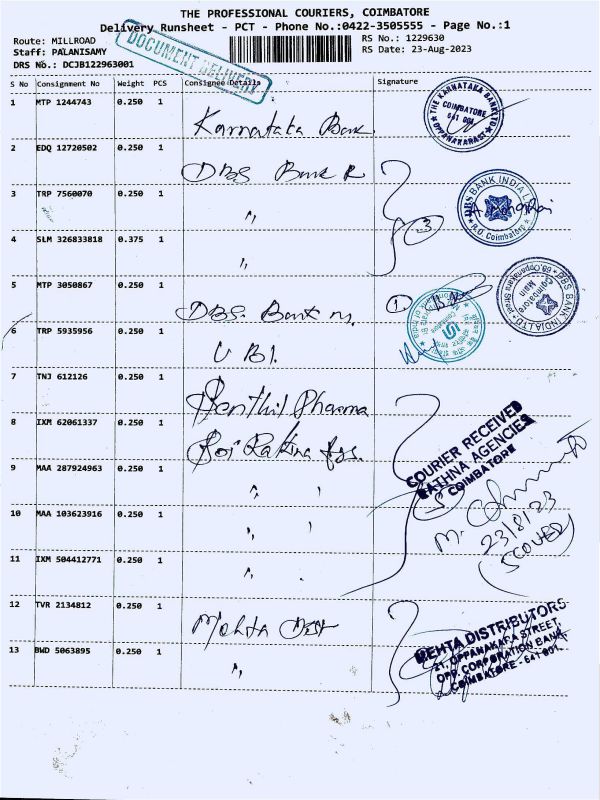 THE PROFESSIONAL COURIERS, COIMBATORE
Delivery Runsheet - PCT - Phone No.:0422-3505555 - Page No.:1
Route: MILLROAD
RS No.: 1229630
Staff: PALANISAMY
RS Date: 23-Aug-2023
DRS No.: DCJB122963001
DOCUMENT DELIVERY
S No Consignment No Weight PCS Consignee Details Signature
1 MTP 1244743 0.250 1
Karnataka Bank
THE KARNATAKA BANK LTD
COIMBATORE
641 001
OPPANAKARAST
2 EDQ 12720502 0.250 1
DBS Bank R
3 TRP 7560070 0.250 1
"
3
DBS BANK INDIA LTD
R.O. Coimbatore
4 SLM 326833818 0.375 1
"
5 MTP 3050867 0.250 1
DBS. Bank m.
1
DBS BANK INDIA LTD
Coimbatore
Main
6 TRP 5935956 0.250 1
UBI.
7 TNJ 612126 0.250 1
Senthil Pharma
8 IXM 62061337 0.250 1
Sri Ratna Ass.
COURIER RECEIVED
RATHNA AGENCIES
COIMBATORE
9 MAA 287924963 0.250 1
" '
5
10 MAA 103623916 0.250 1
" '
23/8/23
(5 COVER)
11 IXM 504412771 0.250 1
"
12 TVR 2134812 0.250 1
Mehta Dist
MEHTA DISTRIBUTORS
21, OPPANAKARA STREET,
OPP. CORPORATION BANK,
COIMBATORE - 641 001.
13 BWD 5063895 0.250 1
"